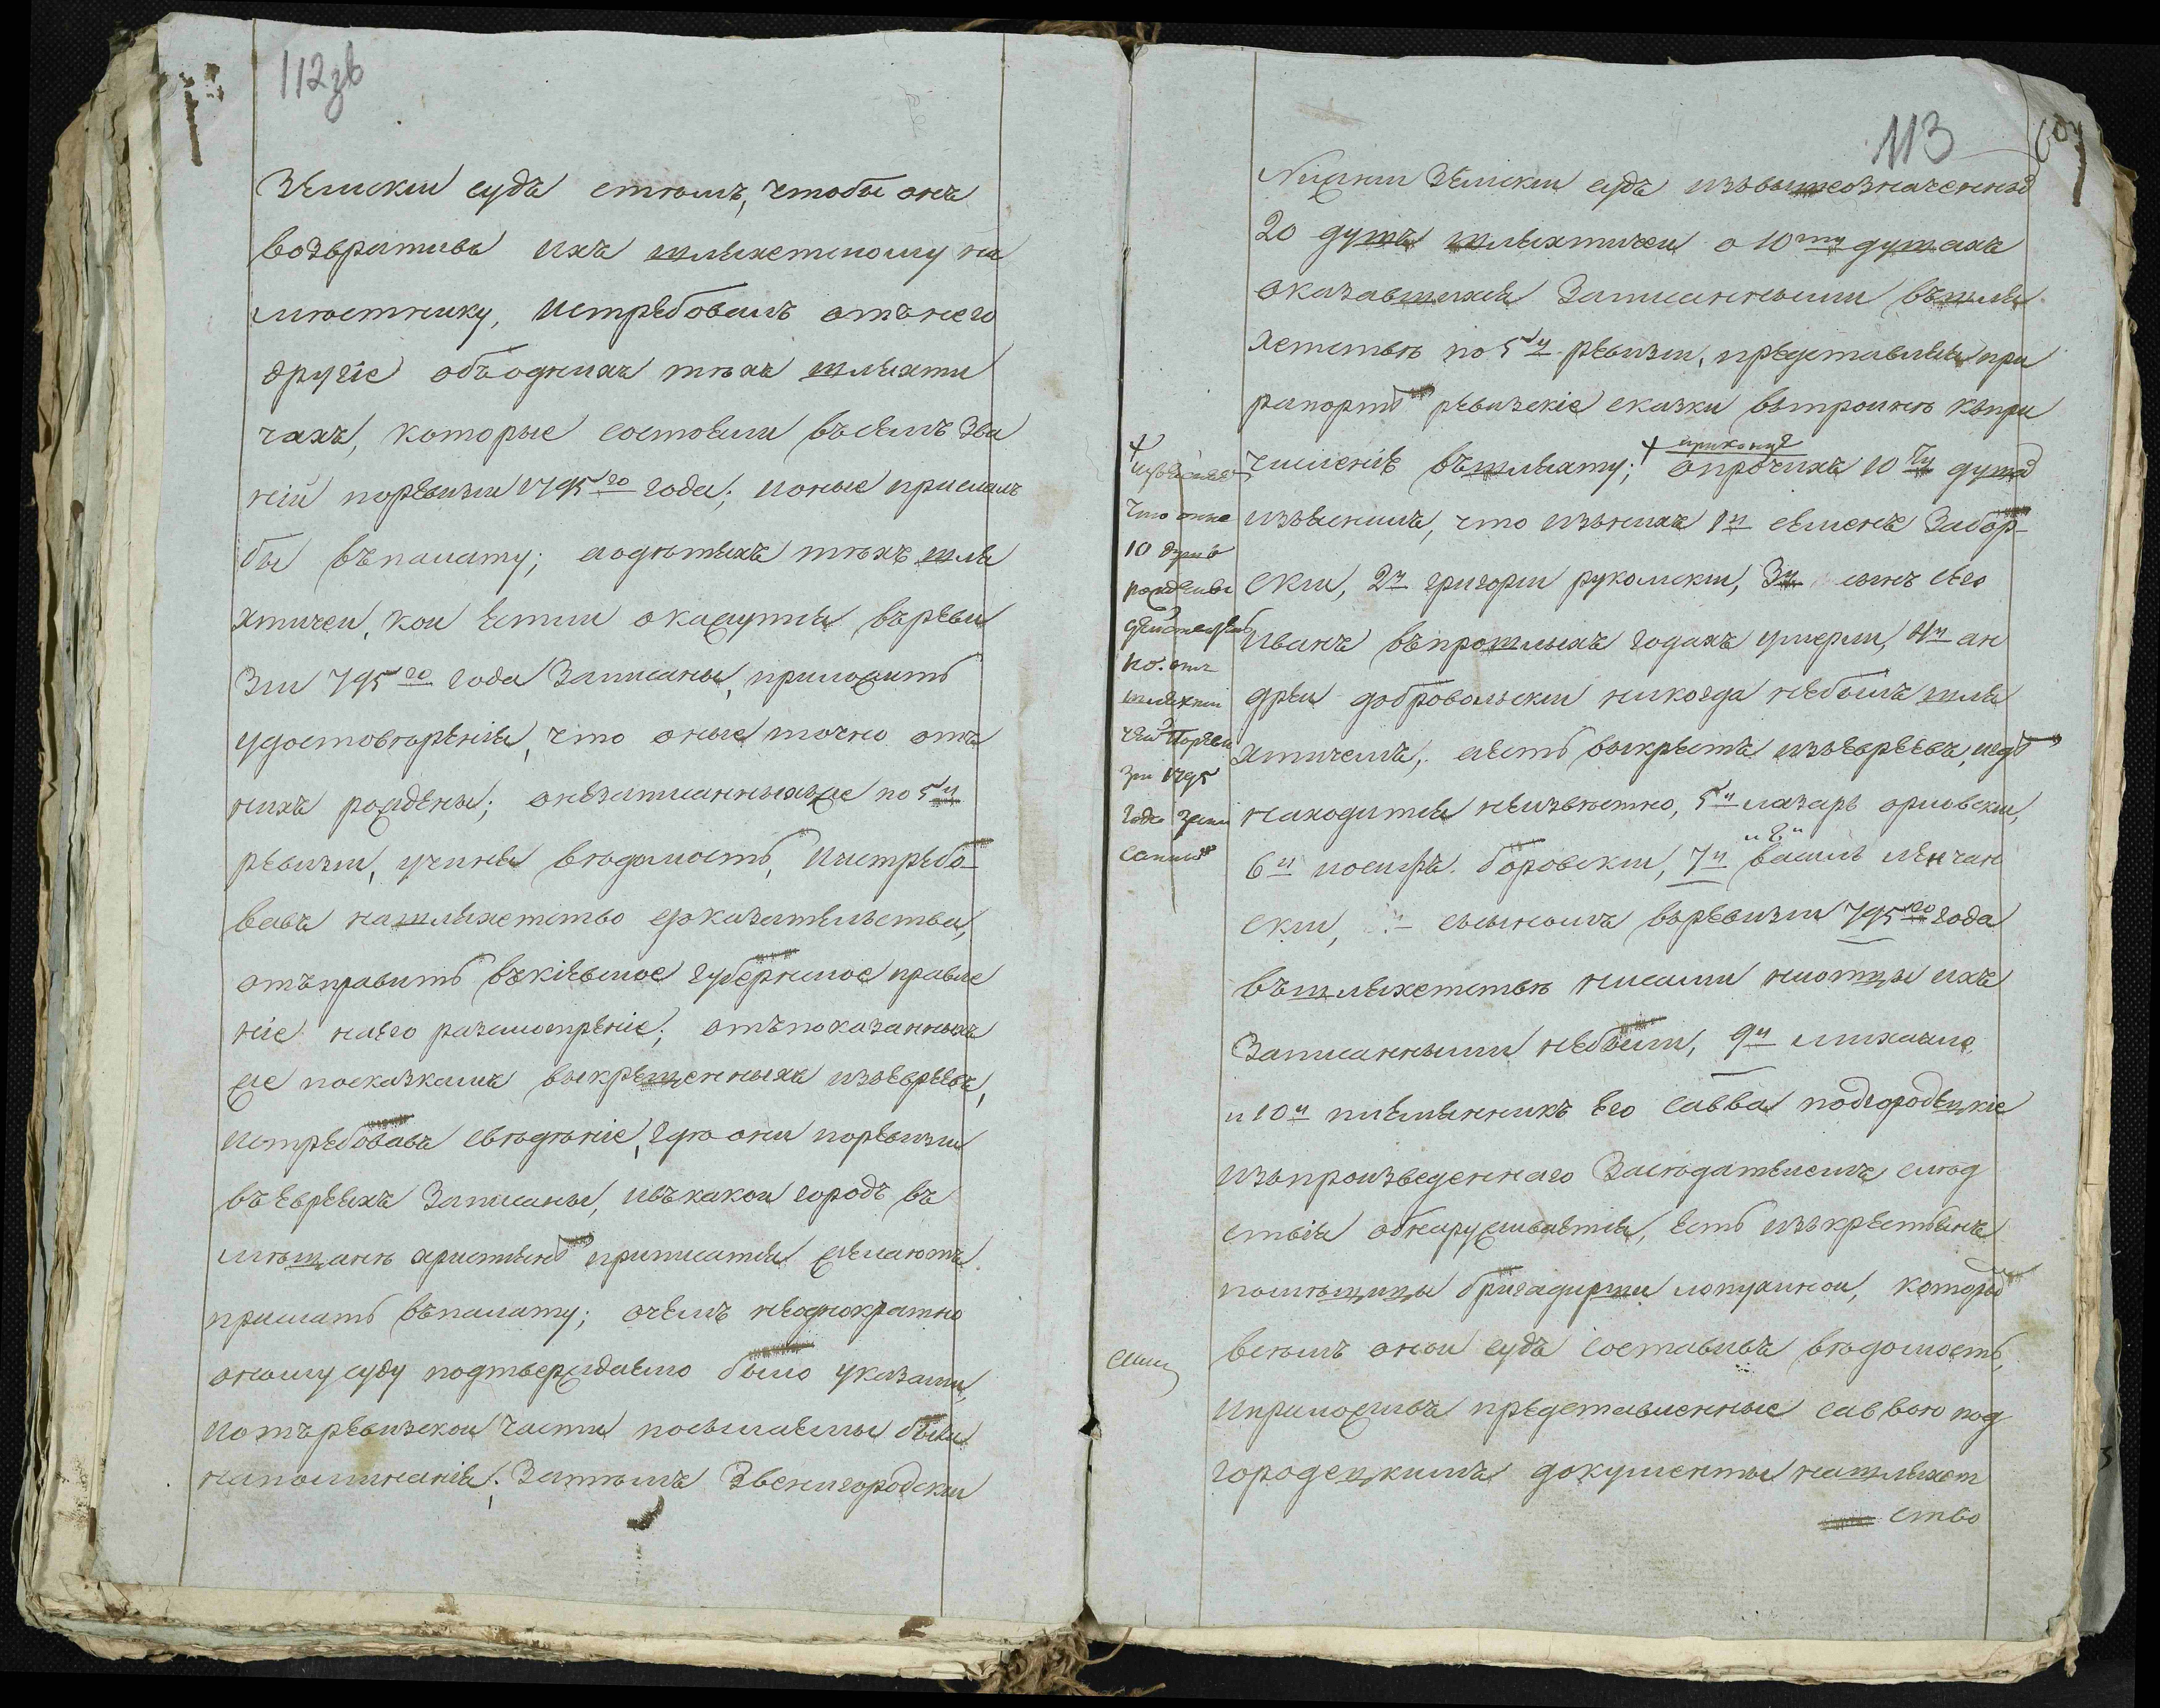 112 зв
Земскии судъ стемъ, чтобы онъ
возвративъ ихъ шляхетскому на
мѣстнику, истребовалъ отънего
другіе объоднихъ тѣхъ шляхти
чахъ, которые состояли въсемъ зва
ніи поревизіи 1795го года; ионые прислалъ
бы въпалату; аодѣтяхъ тѣхъ шля
хтичеи, кои естли окажутся въреви
зіи 795го года записаны, приложитъ
удостовѣренія, что оные точно отъ
нихъ рождены; онезаписанныхже по 5й
ревизіи, учиня вѣдомость, иистребо-
вавъ нашляхетство доказательства,
отъправитъ въкіевское губернское правле
ніе наего разсмотреніе; отъпоказанныхъ
же посказкамъ выкрещенныхъ изъевреевъ,
истребовавъ сведѣніе, гдѣ они поревизіи
въевреяхъ записаны, ивъкакои городъ въ
мѣщанѣ христіянъ приписатся желаютъ
прислать въпалату; очемъ неоднократно
оному суду подтверждаемо было указами,
иотъревизскои части посылаемы были
напоминанія; затѣмъ Звенигородскіи
113
Нижніи Земскіи судъ извышеозначенныхъ
20 душъ шляхтичеи о 10ти душахъ
оказавшихся записанными въшля
хетствѣ по 5й ревизіи, представляя при
рапортѣ ревизскіе сказки втроинѣ къпри
численію въшляхту; + опрочихъ 10ти душахъ
изъяснилъ, что изънихъ 1й семенъ Забор-
скіи, 2й григоріи рукомскіи, 3й сынъ его
Иванъ въпрошлыхъ годахъ умерли, 4й ан
дреи добровольскіи никогда небылъ шля
хтичемъ, аесть выкрестъ изъевреевъ, игдѣ
находится неизвѣстно, 5й лазарь орловскіи,
6й иосифъ боровскіи, 7й и 8й василь ленчан
скіи, ссыномъ въревизіи 795го года
въшляхетствѣ нисами ниотцы ихъ
записанными небыли, 9й михаило
и 10й племянникъ его савва подгородецкіе
изъпроизведеннаго Засѣдателемъ слѣд
ствія обнаруживается, есть изъкрестьянъ
помѣщицы бригадирши лопухинои, которыхъ
всемъ онои судъ составивъ вѣдомость,
иприложивъ представленные саввою под
городецкимъ документы нашляхет
ство
+
что оные
10 душъ
рождены
но отъ
шляхти
чеи поревi
зіи 1795
года запи